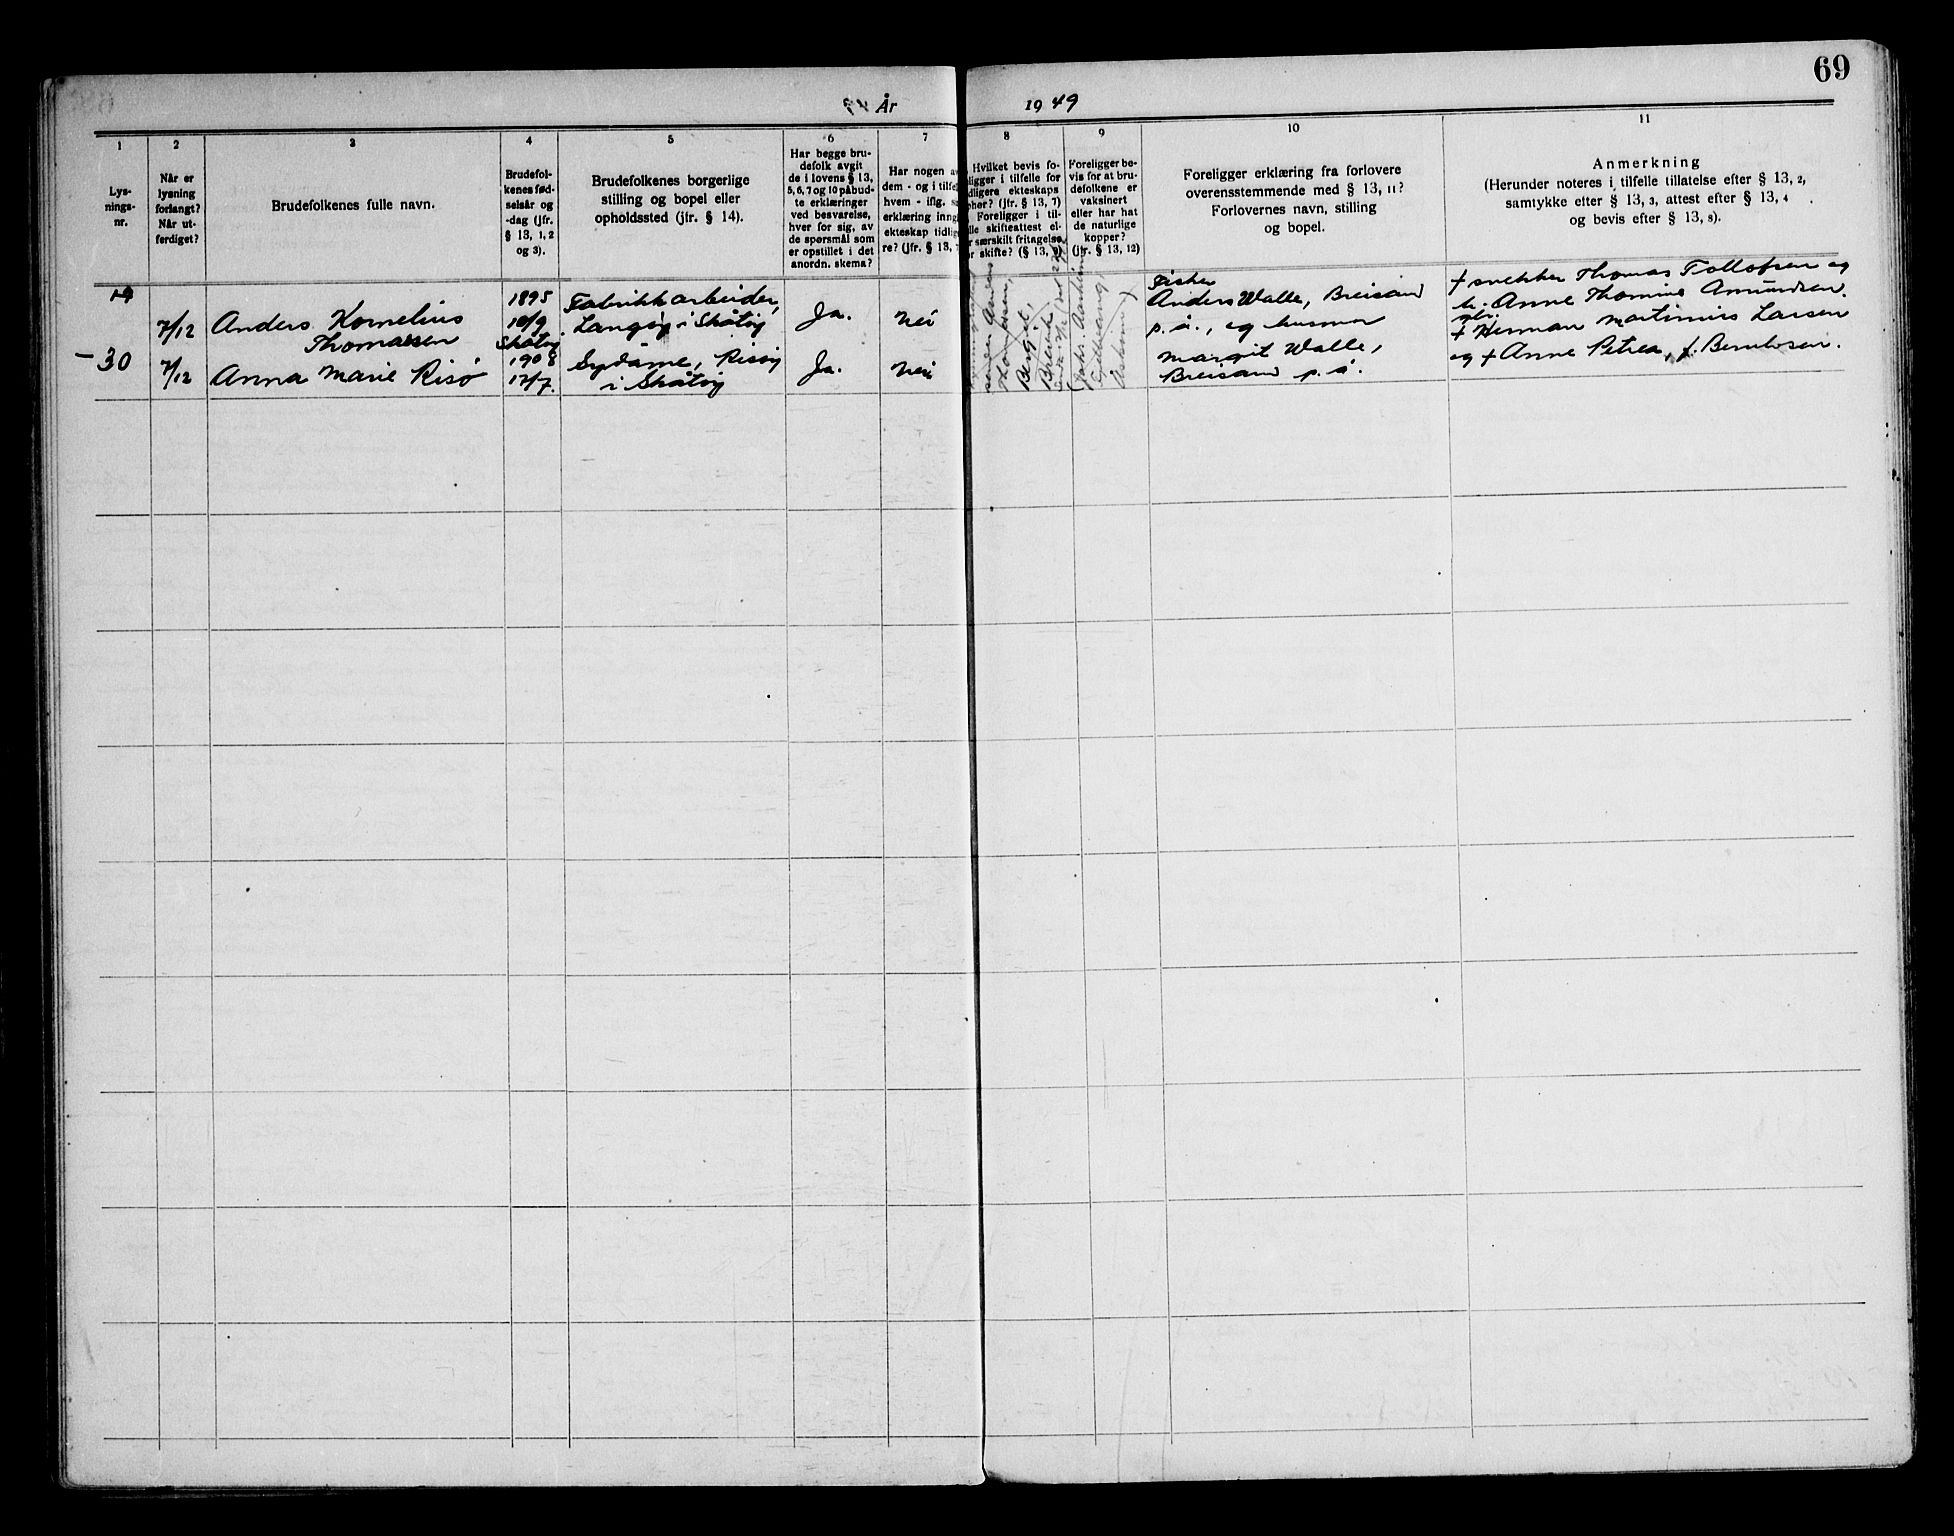 69
År
19 49
1
Lys-
nings-
nr.
2
Når er
lysning
forlangt?
Når ut-
ferdiget?
3
Brudefolkenes fulle navn.
4
Brudefol-
kenes fød-
selsår og
-dag (jfr.
§ 13, 1, 2
og 3).
5
Brudefolkenes borgerlige
stilling og bopel eller
opholdssted (jfr. § 14).
6
Har begge bru-
defolk avgit
de i lovens § 13,
5, 6, 7 og 10 påbud-
te erklæringer
ved besvarelse,
hver for sig, av
de spørsmål som
er opstillet i det
anordn. skema?
7
Har nogen a
dem - og i tilfel
hvem - iflg. s
erklæring inng
ekteskap tidlig
re? (Jfr. § 13,
8
Hvilket bevis fo-
ligger i tilfelle for
dligere ekteskaps
phør? (jfr. § 13, 7)
Foreligger i til-
lle skifteattest el-
r særskilt fritagelse
r skifte? (§ 13,
9
Foreligger be-
vis for at bru-
defolkene er
vaksinert
eller har hat
de naturlige
kopper?
(jfr. § 13, 12)
10
Foreligger erklæring fra forlovere
overensstemmende med § 13, 11?
Forlovernes navn, stilling
og bopel.
11
Anmerkning
(Herunder noteres i tilfelle tillatelse efter § 13, 2,
samtykke efter § 13, 3, attest efter § 13, 4
og bevis efter § 13, 8).
19
-30
7/12
Anders Kornelius
Thomassen
1895
10/9
Skåtøy
Fabrikkarbeider,
Langøy i Skåtøy
Ja.
nei
7/12
Anna Marie Risø
1908
17/7.
Sydame, Risøy
i Skåtøy
Ja.
nei
Anders
Thomassen,
Bergit,
Fisker
Anders Walle, Breisand
p. å., og husmor
Margit Walle,
Breisand p. å.
† snekker Thomas Tollofsen og
h. Anne Thomine Amundsen.
† Herman Martinius Larsen
og † Anne Petrea, f. Berntsen.